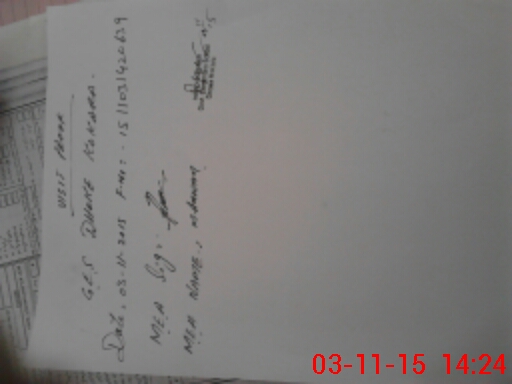 VISIT PROOF
G.E.S DHOKE KOKARA.
Date. 03-11-2015 F.No:- 1511031420639
MEA Sig:-
MEA NAME:
03-11-15 14:24